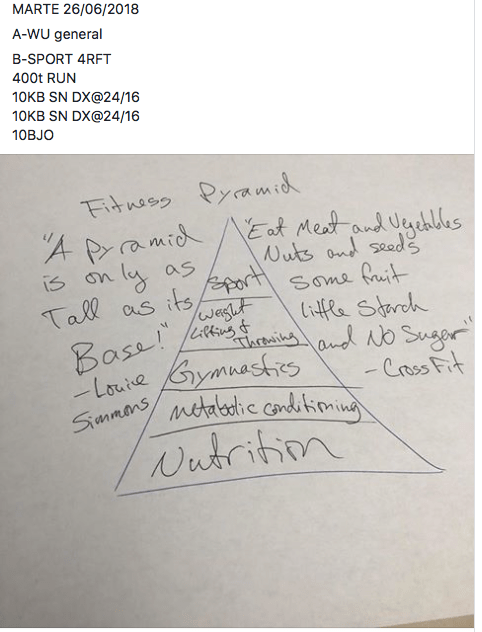 MARTE 26/06/2018
A-WU general
B-SPORT 4RFT
400t RUN
10KB SN DX@24/16
10KB SN DX@24/16
10BJO
Fitness Pyramid
"A Pyramid
is only as
Tall as its
Base!"
- Louie
Simmons
"Eat Meat and Vegetables
Nuts and seeds
Some fruit
little Starch
and No Sugar"
- CrossFit
Sport
Weight
Lifting &
Throwing
Gymnastics
metabolic conditioning
Nutrition